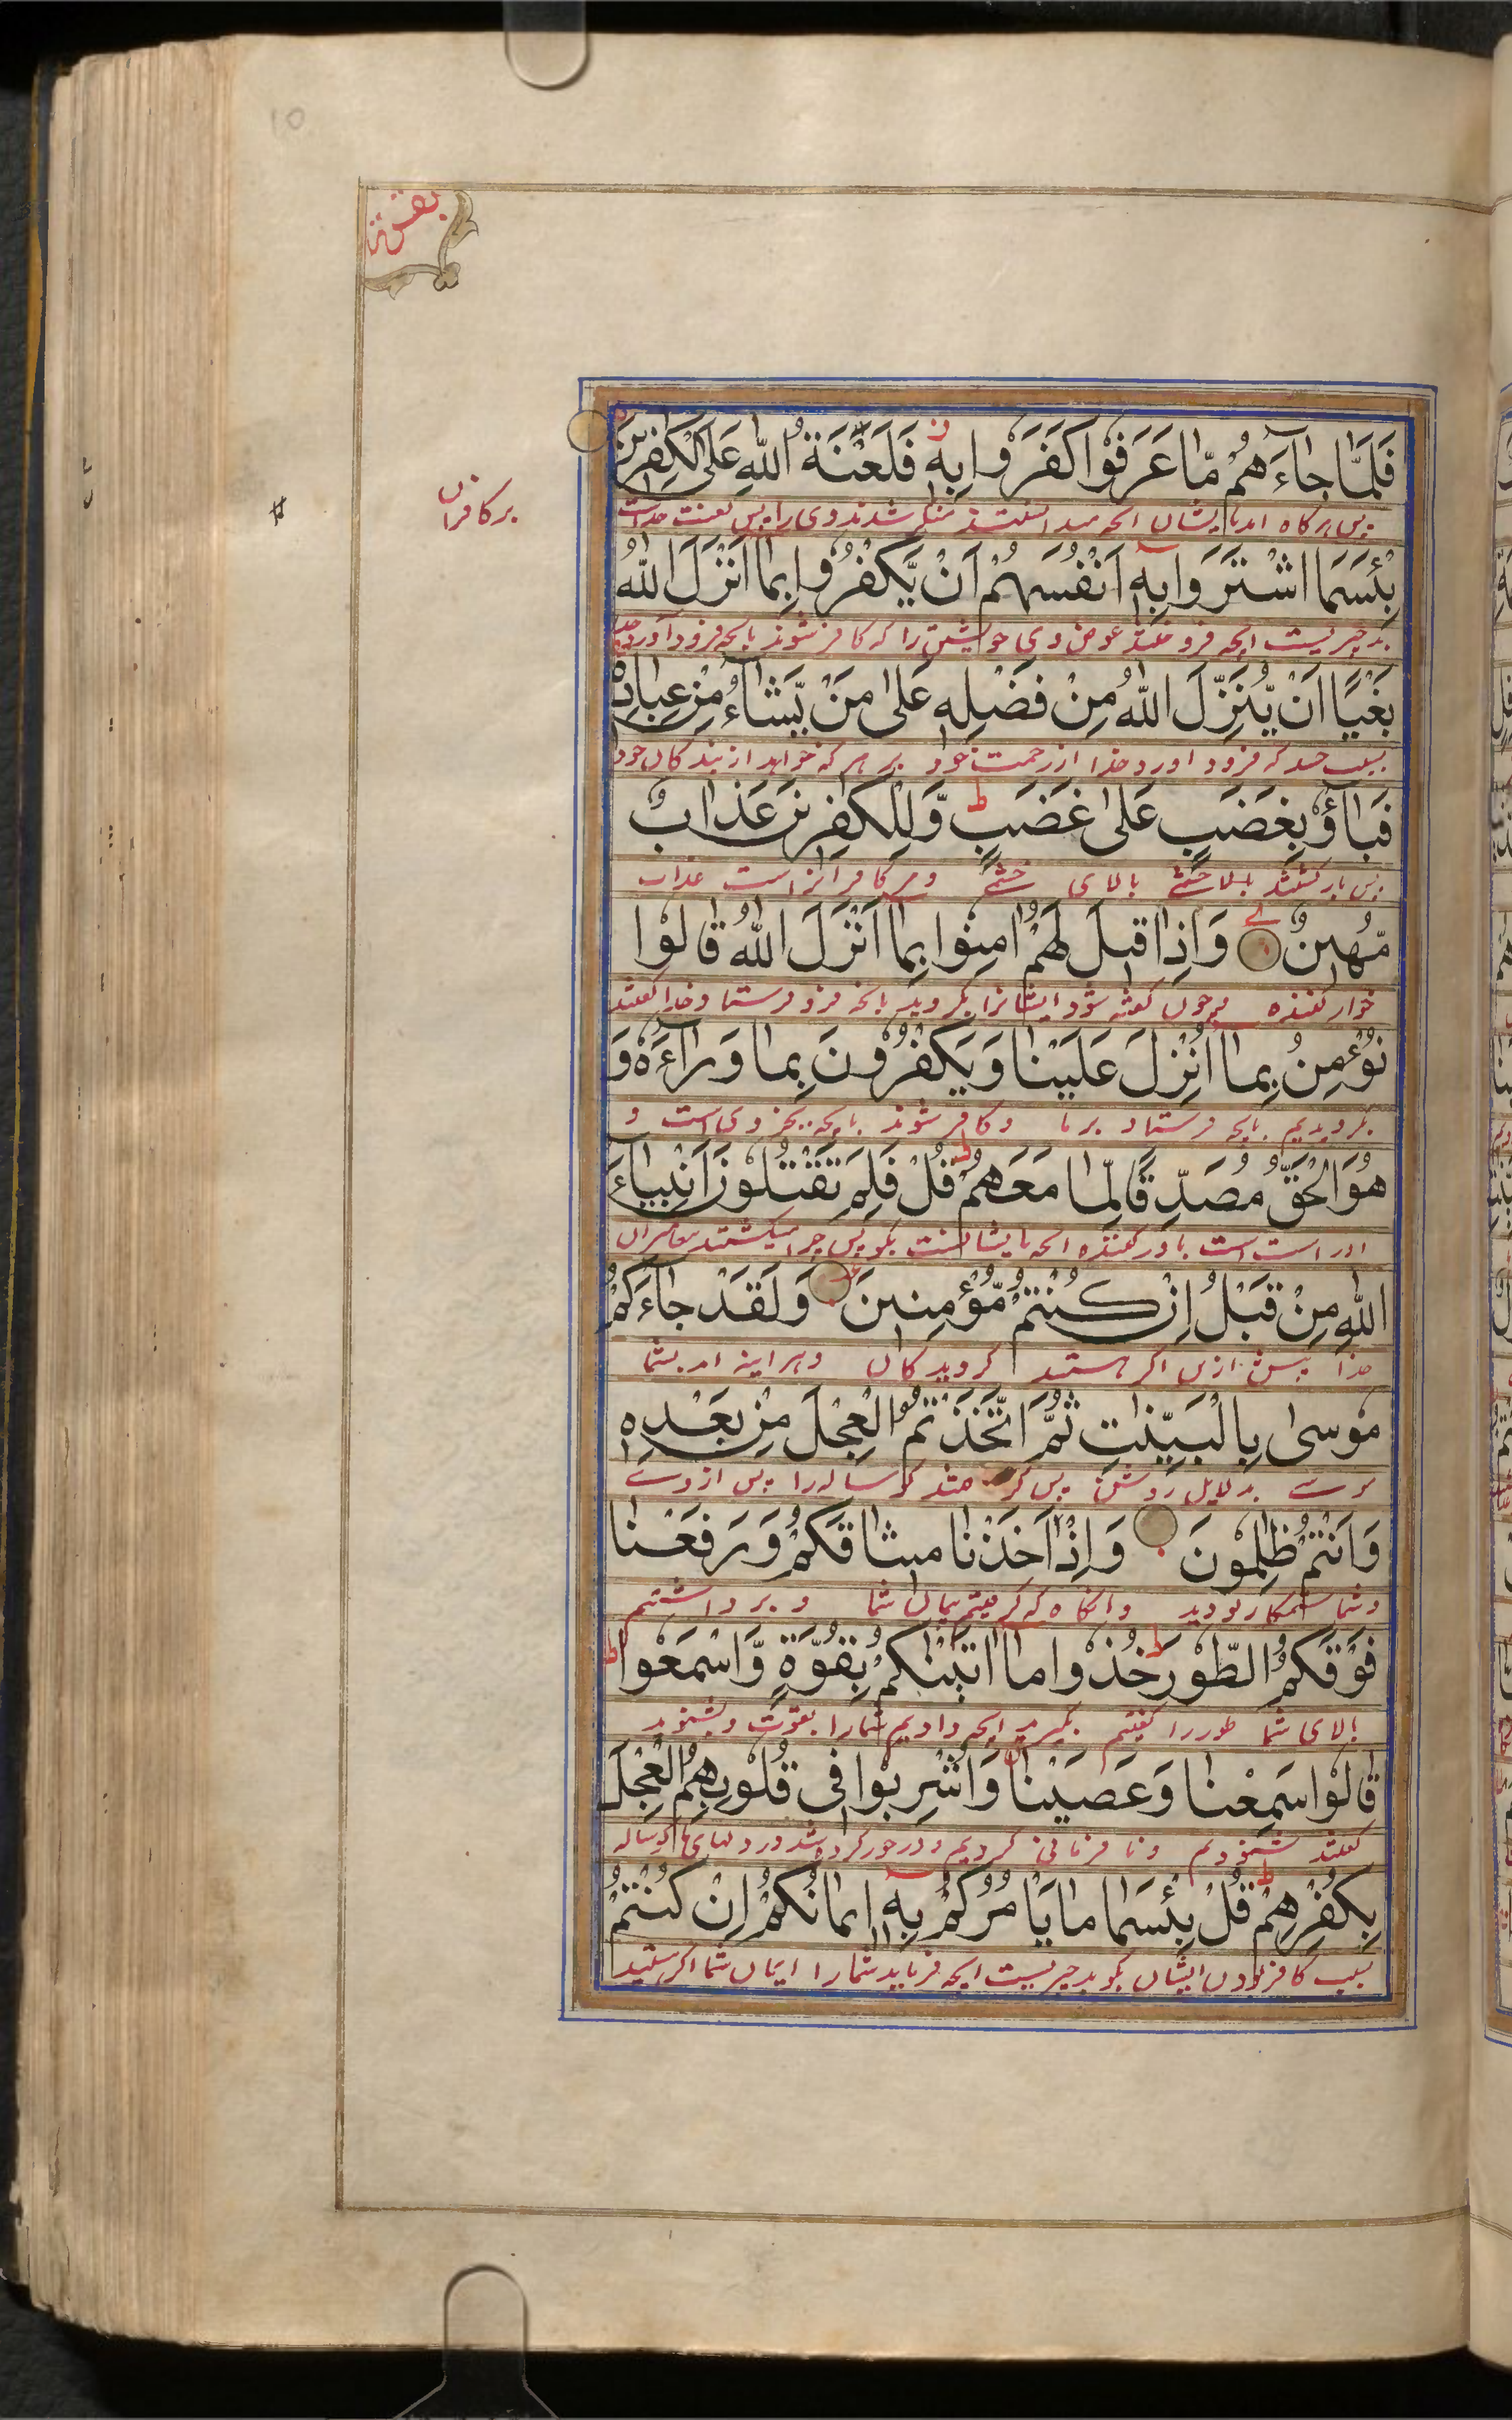 10
بقره
فَلَمَّا جَآءَهُمْ مَّا عَرَفُوْا كَفَرُوْا بِهٖ فَلَعْنَةُ اللّٰهِ عَلَى الْكٰفِرِيْنَ
پس هرگاه امد بایشان انچه میدانستند منکر شدند وی را پس لعنت خداست
بر کافران
بِئْسَمَا اشْتَرَوْا بِهٖٓ اَنْفُسَهُمْ اَنْ يَّكْفُرُوْا بِمَآ اَنْزَلَ اللّٰهُ
بد چیزیست انچه فروختند عوض وی خویشتن را که کافر شوند بانچه فرود اورد خدا
بَغْيًا اَنْ يُّنَزِّلَ اللّٰهُ مِنْ فَضْلِهٖ عَلٰى مَنْ يَّشَآءُ مِنْ عِبَادِهٖ
بسبب حسد که فرود اورد خدا از رحمت خود بر هر که خواهد از بندکان خود
فَبَآؤُ بِغَضَبٍ عَلٰى غَضَبٍ ط وَّلِلْكٰفِرِيْنَ عَذَابٌ
پس بازکشتند بالا خشمے بالای خشم و مر کافرانراست عذاب
مُّهِيْنٌ وَاِذَا قِيْلَ لَهُمْ اٰمِنُوْا بِمَآ اَنْزَلَ اللّٰهُ قَالُوْا
خوار کننده و چون کفته شود ایشانرا بکروید بانچه فرو فرستاد خدا کفتند
نُؤْمِنُ بِمَآ اُنْزِلَ عَلَيْنَا وَيَكْفُرُوْنَ بِمَا وَرَآءَهٗ وَ
بکرویدیم بانچه فرستاد بر ما و کافر شوند بانچه بجز وی است و
هُوَ الْحَقُّ مُصَدِّقًا لِّمَا مَعَهُمْ ط قُلْ فَلِمَ تَقْتُلُوْنَ اَنْبِيَآءَ
او راست است باور کننده انچه با یشانست بکو پس چرا میکشتند پیغامبران
اللّٰهِ مِنْ قَبْلُ اِنْ كُنْتُمْ مُّؤْمِنِيْنَ وَلَقَدْ جَآءَكُمْ
خدا پیش ازین اکر هستید کرویدکان و هراینه امد بشما
مُوْسٰى بِالْبَيِّنٰتِ ثُمَّ اتَّخَذْتُمُ الْعِجْلَ مِنْ بَعْدِهٖ
موسے بدلایل روشن پس کر فتند کوساله را پس از وے
وَاَنْتُمْ ظٰلِمُوْنَ وَاِذْ اَخَذْنَا مِيْثَاقَكُمْ وَرَفَعْنَا
و شما ستمکار بودید و انکاه که کرفتیم پیمان شما و برداشتیم
فَوْقَكُمُ الطُّوْرَ ط خُذُوْا مَآ اٰتَيْنٰكُمْ بِقُوَّةٍ وَّاسْمَعُوْا ط
بالای شما طور را کفتیم بکیرید انچه دادیم شمارا بقوت و بشنوید
قَالُوْا سَمِعْنَا وَعَصَيْنَا وَاُشْرِبُوْا فِيْ قُلُوْبِهِمُ الْعِجْلَ
کفتند شنودیم و نا فرمانی کردیم و در خور کرده شد در دلهای کوساله
بِكُفْرِهِمْ ط قُلْ بِئْسَمَا مَا يَأْمُرُكُمْ بِهٖٓ اِيْمَانُكُمْ اِنْ كُنْتُمْ
بسبب کافر بودن ایشان بکو بد چیزیست انچه فرماید شمارا ایمان شما اکر هستید